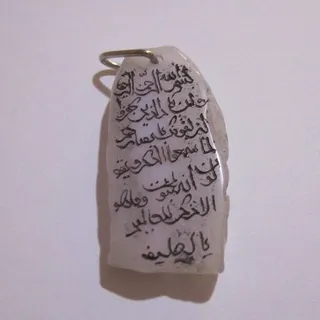 بسم الله الرحمن الرحيم
وان يكاد الذين كفروا
ليزلقونك بابصارهم
لما سمعوا الذكر ويقو
لون انه لمجنون وما هو
الا ذكر للعالمين
يا لطيف